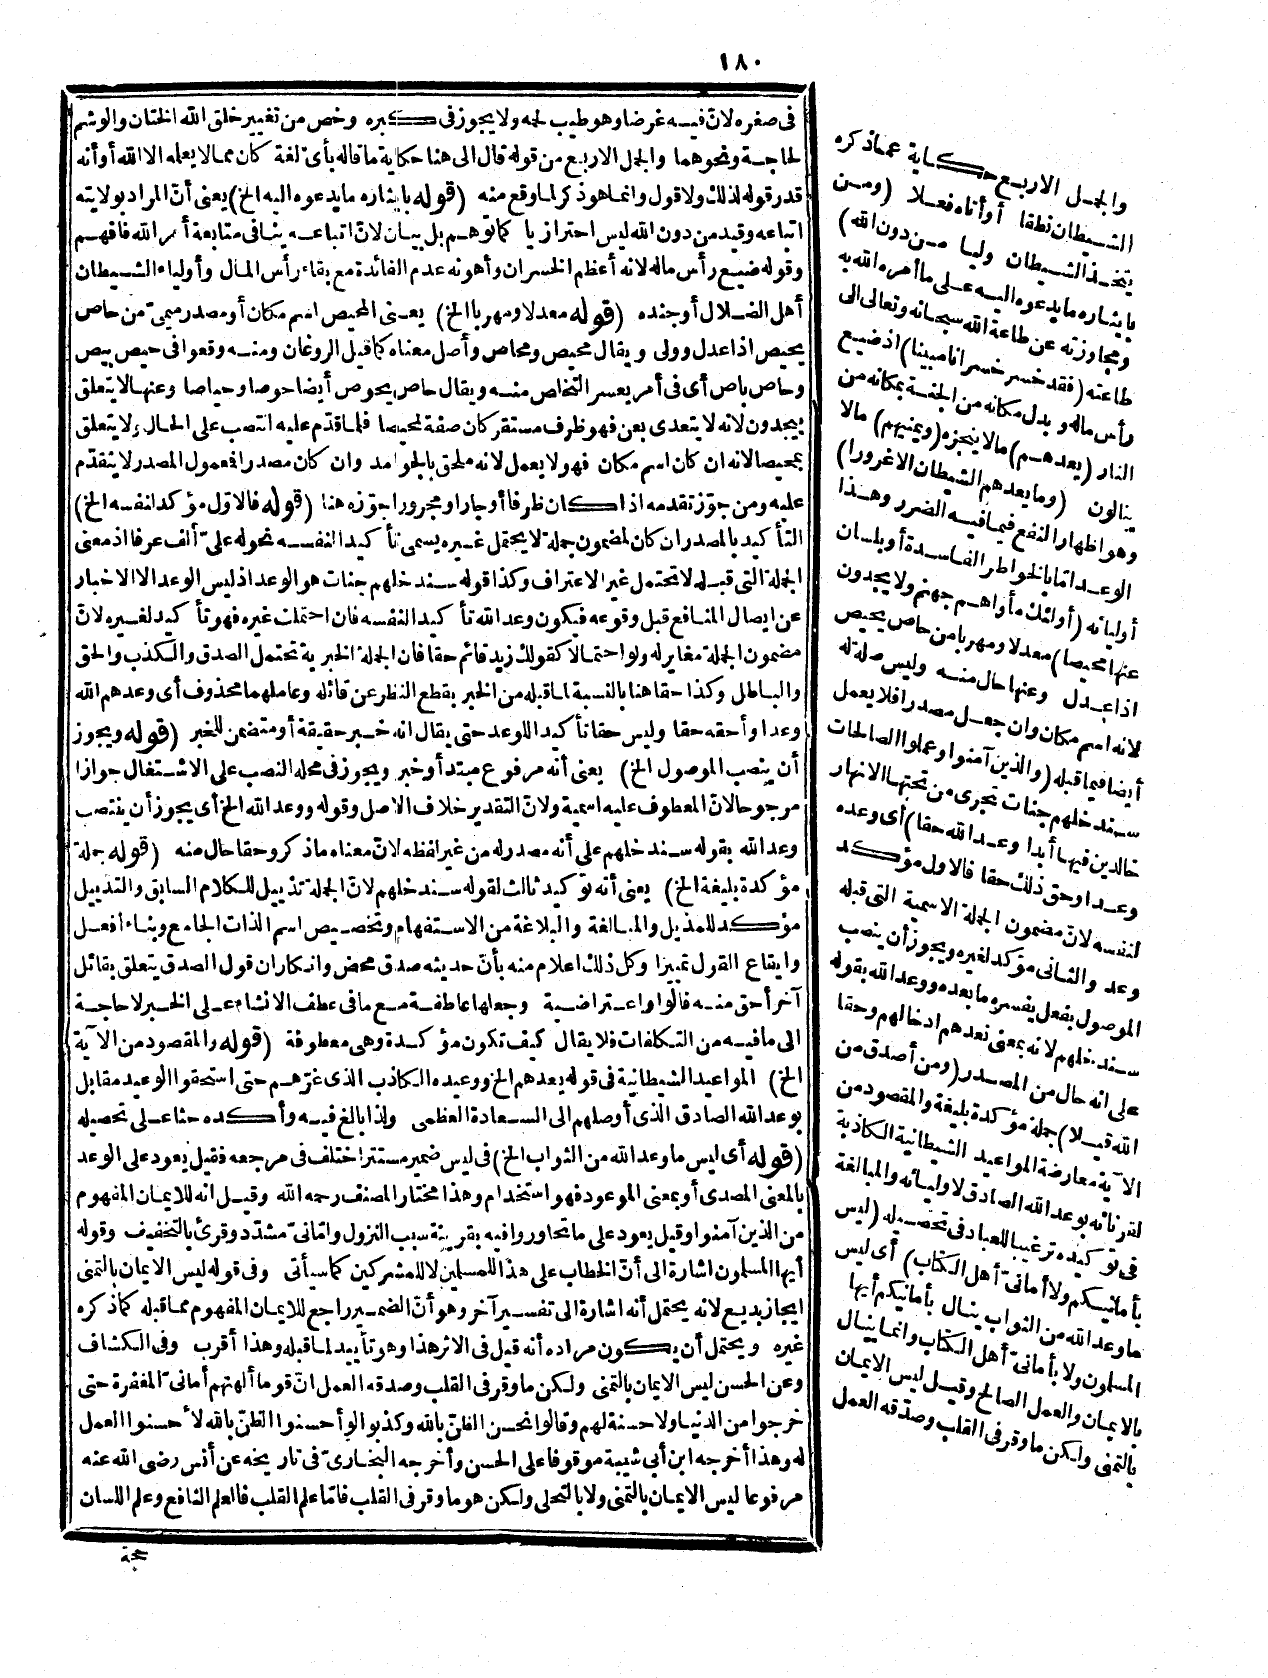 ١٨٠
فى صغره لانّ فيه غرضا وهو طيب لحمه ولا يجوز فى كبره وخص من تغيير خلق الله الختان والوشم
لحاجة ونحوهما والجمل الاربع من قوله قال الى هنا حكاية ما قاله بأىّ لغة كان مما لا يعلمه الا الله أو أنه
قدر قوله لذلك ولا قول وانما هو ذكر لما وقع منه (قوله بايثاره ما يدعوه اليه الخ) يعنى أنّ المراد بولايته
اتباعه وقيد من دون الله ليس احترازيا كما توهم بل بيان لانّ اتباعه ينافى متابعة أمر الله فافهم
وقوله ضيع رأس ماله لانه أعظم الخسران وأهونه عدم الفائدة مع بقاء رأس المال وأولياء الشيطان
أهل الضلال أو جنده (قوله معدلا ومهربا الخ) يعنى المحيص اسم مكان أو مصدر ميمىّ من حاص
يحيص اذا عدل وولى ويقال محيص ومحاص وأصل معناه كما قيل الروغان ومنه وقعوا فى حيص بيص
وحاص باص أى فى أمر يعسر التخاص منه ويقال حاص يحوص أيضا حوصا وحياصا وعنها لا يتعلق
بيجدون لانه لا يتعدى بعن فهو ظرف مستقر كان صفة لمحيصا فلما قدّم عليه انتصب على الحال ولا يتعلق
بمحيصا لانه ان كان اسم مكان فهو لا يعمل لانه ملحق بالجوامد وان كان مصدرا فمعمول المصدر لا يتقدّم
عليه ومن جوّز تقدمه اذا كان ظرفا أو جارا ومجرورا جوّزه هنا (قوله فالاول مؤكد لنفسه الخ)
التأكيد بالمصدر ان كان لمضمون جملة لا يحتمل غيره يسمى تأكيدا لنفسه نحو له علىّ ألف عرفا اذ معنى
الجملة التى قبله لا تحتمل غير الاعتراف وكذا قوله سندخلهم جنات هو الوعد اذ ليس الوعد الا الاخبار
عن ايصال المنافع قبل وقوعه فيكون وعد الله تأكيدا لنفسه فان احتملت غيره فهو تأكيد لغيره لانّ
مضمون الجملة مغاير له ولو احتمالا كقولك زيد قائم حقا فان الجملة الخبرية تحتمل الصدق والكذب والحق
والباطل وكذا حقا هنا بالنسبة لما قبله من الخبر بقطع النظر عن قائله وعاملهما محذوف أى وعدهم الله
وعدا وأحقه حقا وليس حقا تأكيدا للوعد حتى يقال انه خبر حقيقة أو متضمن للخبر (قوله ويجوز
أن ينصب الموصول الخ) يعنى أنه مرفوع مبتدأ وخبر ويجوز فى محله النصب على الاشتغال جوازا
مرجوحا لانّ المعطوف عليه اسمية ولانّ التقدير خلاف الاصل وقوله ووعد الله الخ أى يجوز أن ينتصب
وعد الله بقوله سندخلهم على أنه مصدر له من غير لفظه لانّ معناه ما ذكر وحقا حال منه (قوله جملة
مؤكدة بليغة الخ) يعنى أنه توكيد ثالث لقوله سندخلهم لانّ الجملة تذييل للكلام السابق والتذييل
مؤكد للمذيل والمبالغة والبلاغة من الاستفهام وتخصيص اسم الذات الجامع وبناء أفعل
وايقاع القول تمييزا وكل ذلك اعلام منه بأنّ حديثه صدق محض وانكار ان قول الصدق يتعلق بقائل
آخر أحق منه فالواو اعتراضية وجعلها عاطفة مع ما فى عطف الانشاء على الخبر لا حاجة
الى ما فيه من التكلفات فلا يقال كيف تكون مؤكدة وهى معطوفة (قوله والمقصود من الآية
الخ) المواعيد الشيطانية فى قوله يعدهم الخ ووعيده الكاذب الذى غرّهم حتى استحقوا الوعيد مقابل
بوعد الله الصادق الذى أوصلهم الى السعادة العظمى ولذا بالغ فيه وأكده حثا على تحصيله
(قوله أى ليس ما وعد الله من الثواب الخ) فى ليس ضمير مستتر اختلف فى مرجعه فقيل يعود على الوعد
بالمعنى المصدى أو بمعنى الموعود فهو استخدام وهذا مختار المصنف رحمه الله وقيل انه للايمان المفهوم
من الذين آمنوا وقيل يعود على ما تحاوروا فيه بقرينة سبب النزول وامّانىّ مشدّد وقرئ بالتخفيف وقوله
أيها المسلمون اشارة الى أنّ الخطاب على هذا للمسلمين لا للمشركين كما سيأتى وفى قوله ليس الايمان بالتمنى
ايجاز بديع لانه يحتمل أنه اشارة الى تفسير آخر وهو أنّ الضمير راجع للايمان المفهوم مما قبله كما ذكره
غيره ويحتمل أن يكون مراده أنه قيل فى الاثر هذا وهو تأييد لما قبله وهذا أقرب وفى الكشاف
وعن الحسن ليس الايمان بالتمنى ولكن ما وقر فى القلب وصدقه العمل انّ قوما ألهتهم أمانىّ المغفرة حتى
خرجوا من الدنيا ولا حسنة لهم وقالوا نحسن الظنّ بالله وكذبوا لو أحسنوا الظنّ بالله لأحسنوا العمل
له وهذا أخرجه ابن أبى شيبة موقوفا على الحسن وأخرجه البخارىّ فى تاريخه عن أنس رضى الله عنه
مرفوعا ليس الايمان بالتمنى ولا بالتحلى ولكن هو ما وقر فى القلب فامّا علم القلب فالعلم النافع وعلم اللسان
والجمل الاربع حكاية عما ذكره
الشيطان نطقا أو أتاه فعلا (ومن
يتخذ الشيطان وليا من دون الله)
بايثاره ما يدعوه اليه على ما أمره الله به
ومجاوزته عن طاعة الله سبحانه وتعالى الى
طاعته (فقد خسر خسرانا مبينا) اذ ضيع
رأس ماله وبدل مكانه من الجنة بمكانه من
النار (يعدهم) ما لا ينجزه (ويمنيهم) ما لا
ينالون (وما يعدهم الشيطان الا غرورا)
وهو اظهار النفع فيما فيه الضرر وهذا
الوعد امّا بالخواطر الفاسدة أو بلسان
أوليائه (أولئك مأواهم جهنم ولا يجدون
عنها محيصا) معدلا ومهربا من حاص يحيص
اذا عدل وعنها حال منه وليس صلة له
لانه اسم مكان وان جعل مصدرا فلا يعمل
أيضا فيما قبله (والذين آمنوا وعملوا الصالحات
سندخلهم جنات تجرى من تحتها الانهار
خالدين فيها أبدا وعد الله حقا) أى وعده
وعدا وحق ذلك حقا فالاول مؤكد
لنفسه لانّ مضمون الجملة الاسمية التى قبله
وعد والثانى مؤكد لغيره ويجوز أن ينصب
الموصول بفعل يفسره ما بعده ووعد الله بقوله
سندخلهم لانه بمعنى نعدهم ادخالهم وحقا
على انه حال من المصدر (ومن أصدق من
الله قيلا) جملة مؤكدة بليغة والمقصود من
الآية معارضة المواعيد الشيطانية الكاذبة
لقرنائه بوعد الله الصادق لاوليائه والمبالغة
فى توكيده ترغيبا للعباد فى تحصيله (ليس
بأمانيكم ولا أمانىّ أهل الكتاب) أى ليس
ما وعد الله من الثواب ينال بأمانيكم أيها
المسلمون ولا بأمانىّ أهل الكتاب وانما ينال
بالايمان والعمل الصالح وقيل ليس الايمان
بالتمنى ولكن ما وقر فى القلب وصدّقه العمل